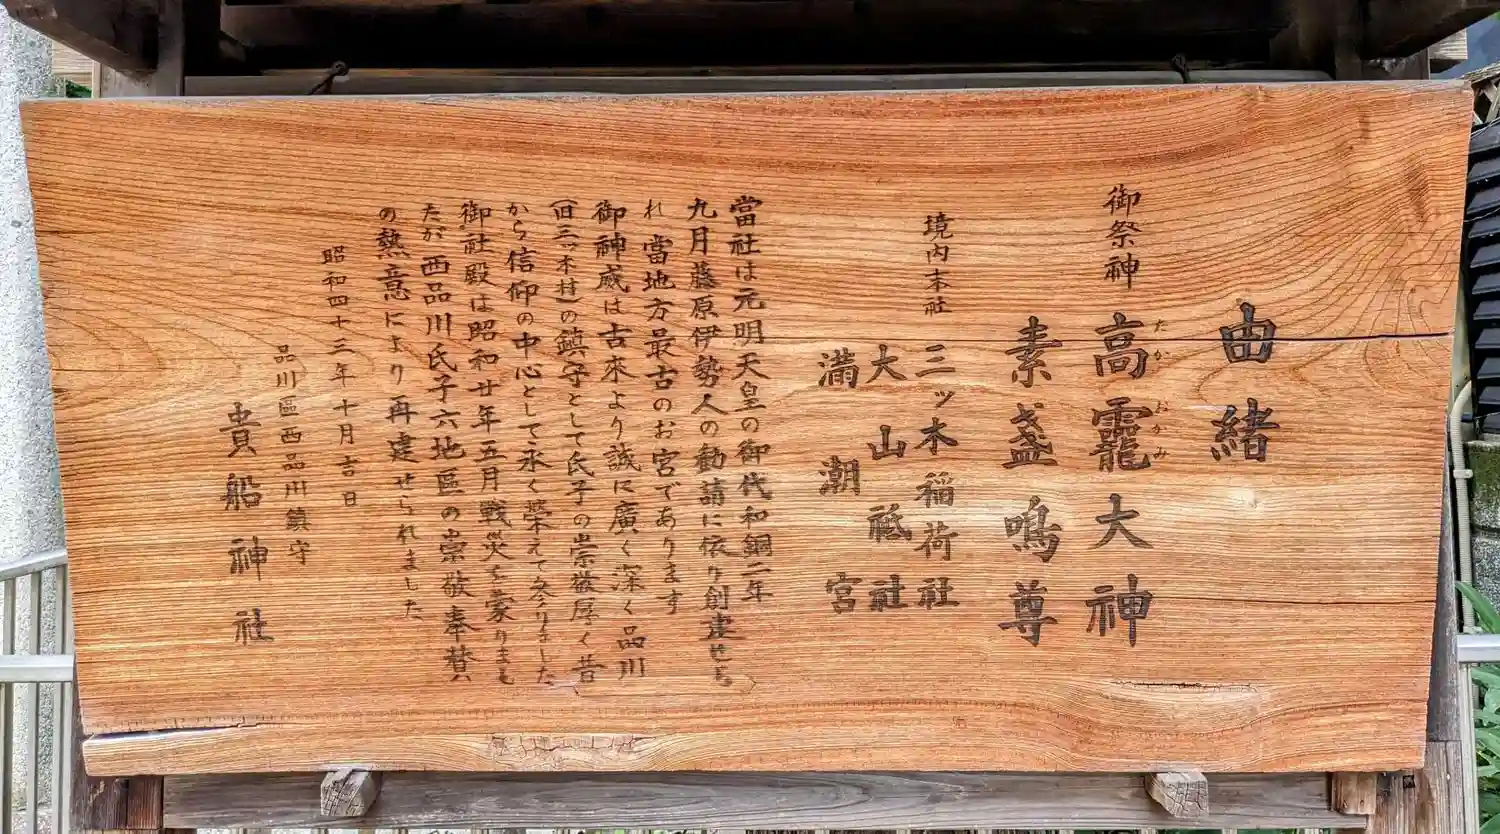 由緒
御祭神 高靇大神
たか おかみ
素盞鳴尊
境内末社 三ッ木稲荷社
大山祗社
満潮宮
當社は元明天皇の御代和銅二年
九月藤原伊勢人の勧請に依り創建せら
れ當地方最古のお宮であります
御神威は古來より誠に廣く深く品川
(旧三ッ木村)の鎮守として氏子の崇敬厚く昔
から信仰の中心として永く榮えて参りました
御社殿は昭和廿年五月戦災を蒙りまし
たが西品川氏子六地區の崇敬奉賛
の熱意により再建せられました
昭和四十三年十月吉日
品川區西品川鎮守
貴船神社